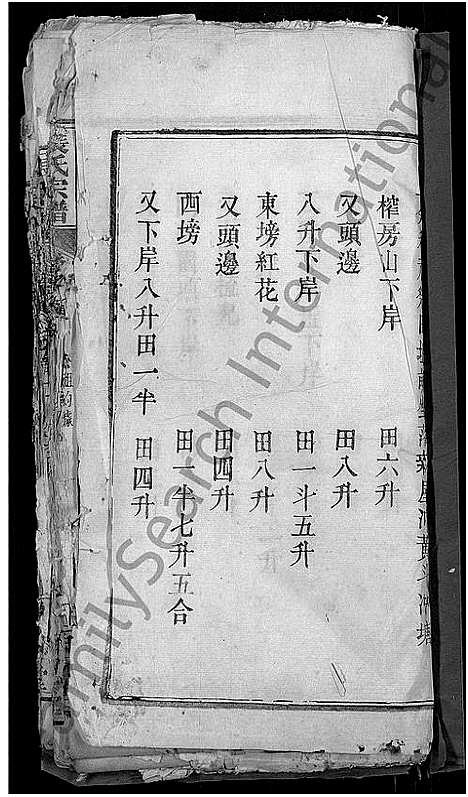 榨房山下岸 田六升
又頭邊 田八升
八升下岸 田一斗五升
東塝紅花 田八升
又頭邊 田四升
西塝 田一半七升五合
又下岸八升田一半 田四升
氏宗譜
FamilySearch International